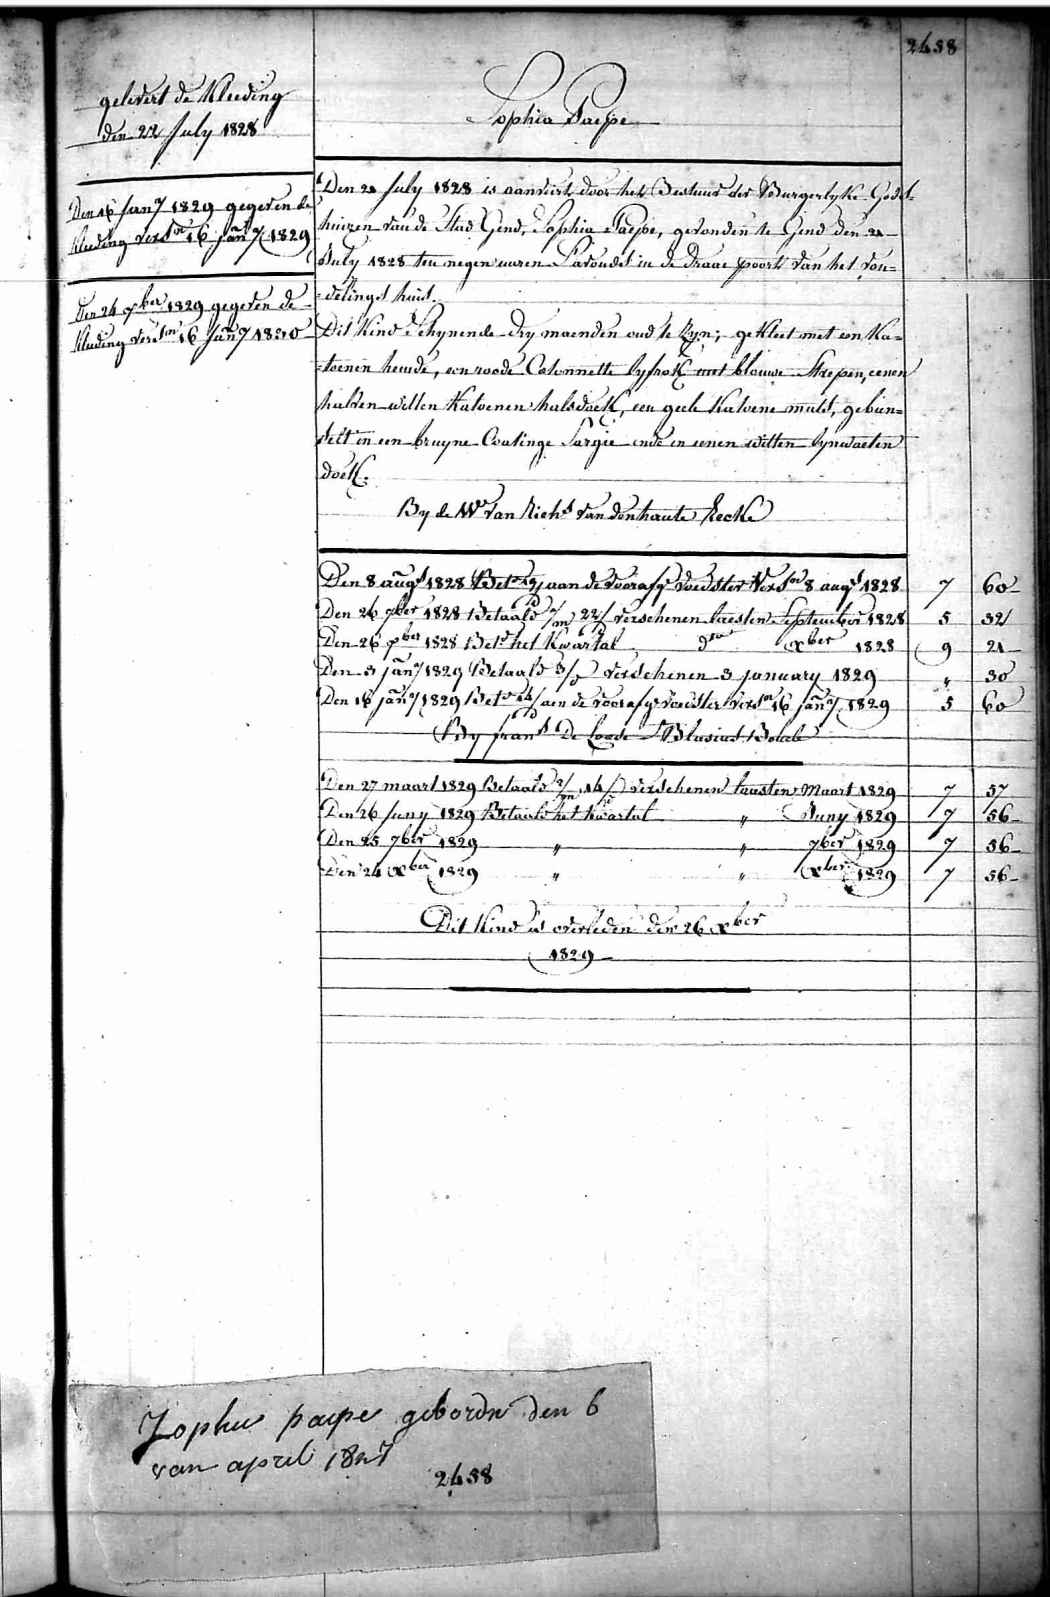 2438
gelevert de Kleeding
den 22 July 1828
Den 16 Jany 1829 gegeven de
kleeding versn 16 Jany 1829
Den 24 xber 1829 gegeven de
kleeding versn 16 Jany 1830
Sophia Paepe
Den 21 July 1828 is aanveirt door het Bestuur der Burgerlyke Gods-
huizen van de Stad Gend, Sophia Paepe, gevonden te Gend den 21
July 1828 ten negen uuren S'avonds in de Draae poort van het von=
=delings huis.
Dit Kind Schynende dry maenden oud te zyn; gekleet met een Ka=
=toenen hemde, een roode Cotonnette lyfrok met blauwe Strepen, eenen
halven witten Katoenen halsdoek, een geele Katoene muts, gebun=
delt in een bruyne Coatinge Sargie ende in eenen witten lynwaeten
doek.
By de We van Richd van den haute Eecke
Den 8 augt 1828 Betd aan de voorafge voedster versn 8 augt 1828 7 60
Den 26 7ber 1828 Betaald 2/m 22/d verschenen laesten September 1828 5 32
Den 26 xber 1828 Betd het Kwartal do xber 1828 9 21
Den 3 Jany 1829 Betaald 3/d verschenen 3 january 1829 " 30
Den 16 Jany 1829 Betd 14/d aen de voorafge voedster versn 16 Jany 1829 5 60
By frans De Loode Blasius Boucle
Den 27 maart 1829 Betaald 2/m 14/d verschenen laesten Maart 1829 7 57
Den 26 Juny 1829 Betaald het Kwartal " Juny 1829 7 56
Den 25 7ber 1829 " " 7ber 1829 7 56
Den 24 xber 1829 " " xber 1829 7 56
Dit Kind is overleden den 26 xber
1829
Zophie paepe geboorn den 6
van april 1827
2438